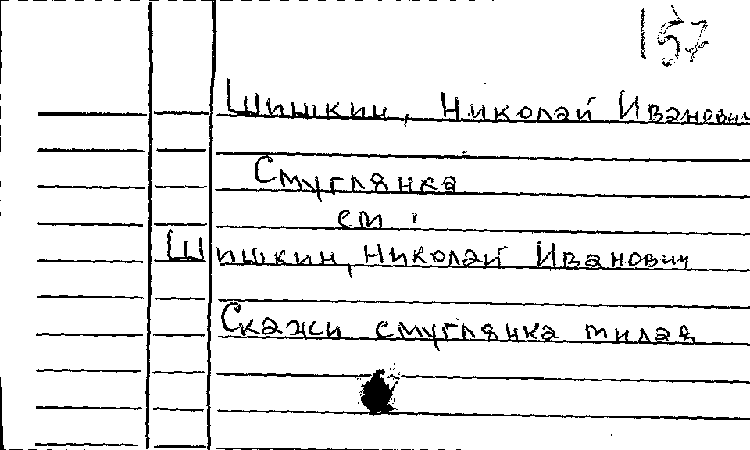 157
Шишкин, Николай Иванович
Смуглянка
см.
Шишкин, Николай Иванович
Скажи смуглянка милая